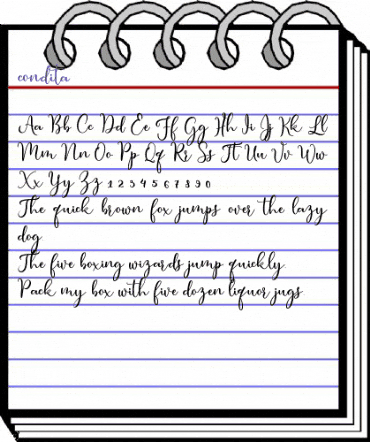 condita
Aa Bb Cc Dd Ee Ff Gg Hh Ii Jj Kk Ll
Mm Nn Oo Pp Qq Rr Ss Tt Uu Vv Ww
Xx Yy Zz 1 2 3 4 5 6 7 8 9 0
The quick brown fox jumps over the lazy
dog
The five boxing wizards jump quickly
Pack my box with five dozen liquor jugs